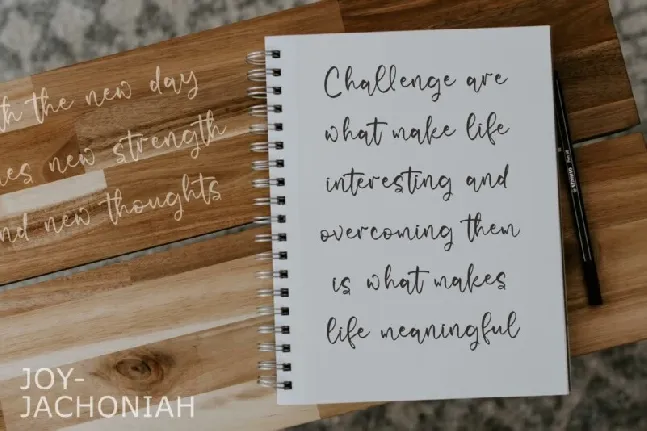 the new day
new strength
new thoughts
Challenge are
what make life
interesting and
overcoming them
is what makes
life meaningful
JOY-
JACHONIAH